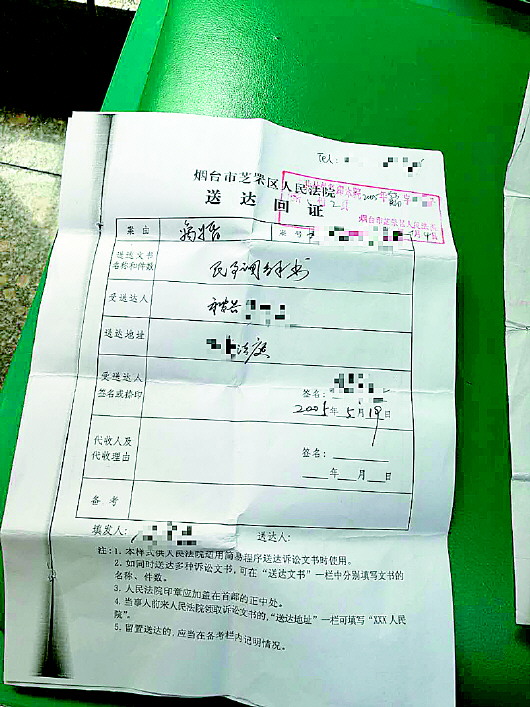 TeL:
烟台市芝罘区人民法院
送达回证
案由 离婚 案号
送达文书
名称和件数 民事调解书
受送达人
送达地址 法庭
受送达人
签名或捺印 签名:
2005年5月19日
代收人及
代收理由 签名:
年 月 日
备考
填发人: 送达人:
注:1. 本样式供人民法院适用简易程序送达诉讼文书时使用。
2. 如同时送达多种诉讼文书,可在“送达文书”一栏中分别填写文书的
名称、件数。
3. 人民法院印章应加盖在首部的正中处。
4. 当事人前来人民法院领取诉讼文书的,“送达地址”一栏可填写“XXX人民
院”。
5. 留置送达的,应当在备考栏内记明情况。